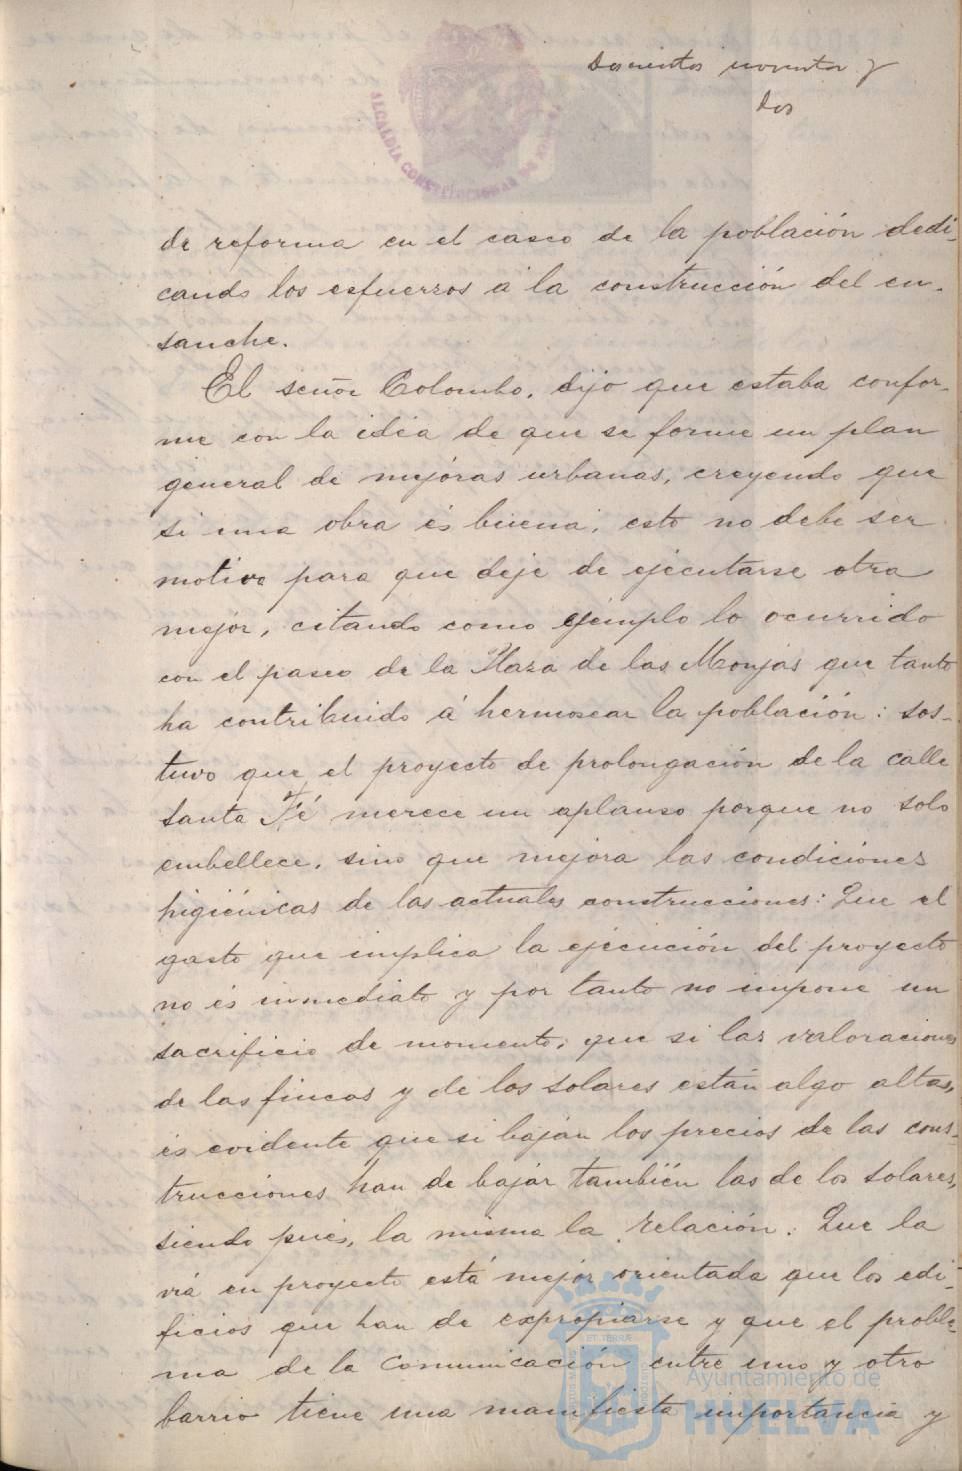 Doscientos noventa y
dos
ALCALDÍA CONSTITUCIONAL DE
de reforma en el casco de la población dedi-
cando los esfuerzos á la construcción del en-
sanche.
El señor Colombo, dijo que estaba confor-
me con la idea de que se forme un plan
general de mejóras urbanas, creyendo que
si una obra és buena, esto no debe ser
motivo para que deje de ejecutarse otra
mejor, citando como ejemplo lo ocurrido
con el paseo de la Haza de las Monjas que tanto
ha contribuido á hermosear la población: sos-
tuvo que el proyecto de prolongación de la calle
Santa Fé merece un aplauso porque no solo
embellece, sino que mejora las condiciones
higiénicas de las actuales construcciones: Que el
gasto que implica la ejecución del proyecto
no és inmediato y por tanto no impone un
sacrificio de momento; que si las valoraciones
de las fincas y de los solares están algo altas,
és evidente que si bajan los precios de las cons-
trucciones han de bajar también las de los solares,
siendo pues, la misma la relación: Que la
vía en proyecto está mejor orientada que los edi-
ficios que han de expropiarse y que el proble-
ma de la comunicación entre uno y otro
barrio tiene una manifiesta importancia y
Ayuntamiento de
HUELVA